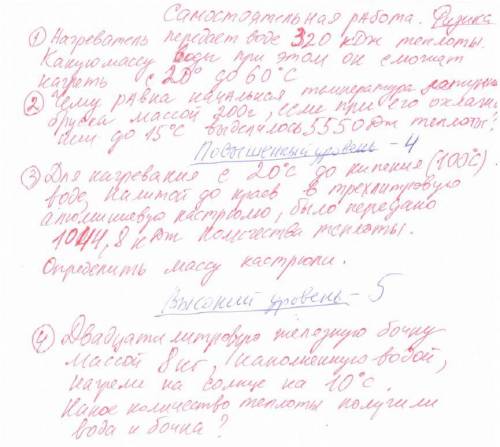 Самостоятельная работа. Физика
① Нагреватель передает воде 320 кДж теплоты.
Какую массу воды при этом он сможет
нагреть с 20° до 60°С
② Чему равна начальная температура латунного
бруска массой 200г, если при его охлажде
нии до 15°С выделилось 5550 Дж теплоты?
Повышенный уровень - 4
③ Для нагревания с 20°С до кипения (100°С)
воды, налитой до краев в трехлитровую
алюминиевую кастрюлю, было передано
1044,8 кДж количества теплоты.
Определить массу кастрюли.
Высокий уровень - 5
④ Двадцатилитровую железную бочку
массой 8 кг, наполненную водой,
нагрели на солнце на 10°С.
Какое количество теплоты получили
вода и бочка?